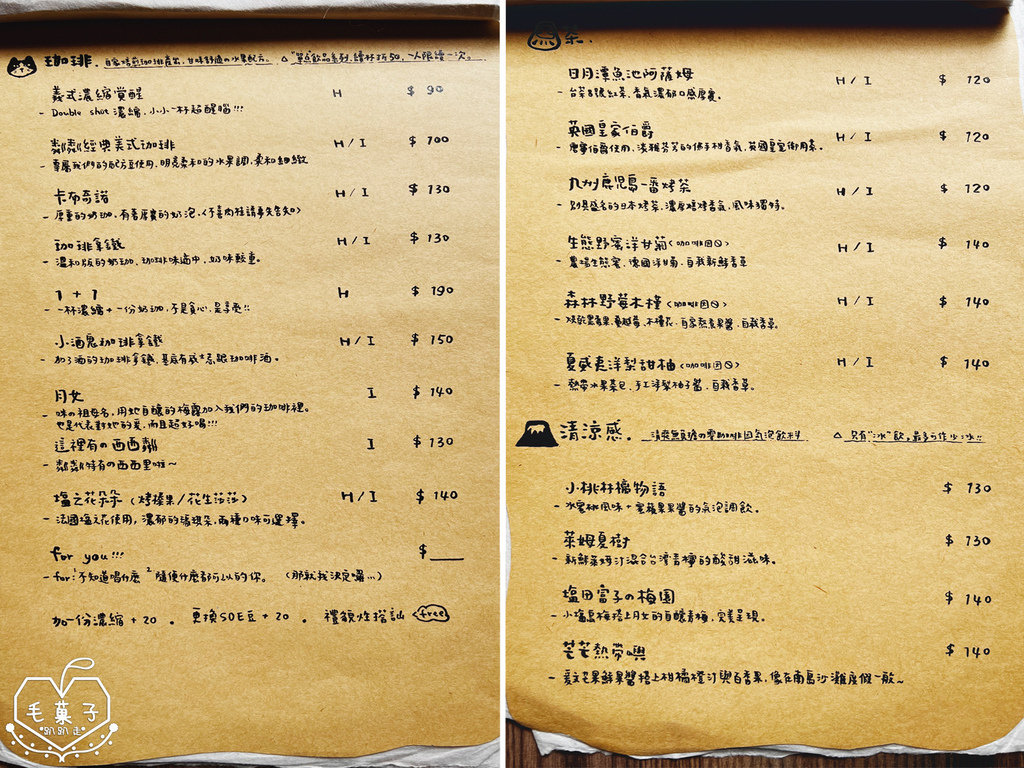 珈琲. 自家焙煎珈琲產出, 甘味舒適の水果配方。 △ "單點"飲品系列, 續杯折50, 一人限續一次。
義式濃縮覺醒 H $ 90
- Double shot 濃縮, 小小一杯超醒腦!!!
粼粼經典美式珈琲 H / I $ 100
- 專屬我們的配方豆使用, 明亮柔和的水果調, 柔和細緻
卡布奇諾 H / I $ 130
- 厚重的奶珈, 有著厚實的奶泡, <不喜肉桂請事先告知>
珈琲拿鐵 H / I $ 130
- 溫和版的奶珈、珈琲味適中, 奶味較重。
1 + 1 H $ 190
- 一杯濃縮 + 一份奶珈, 不是貪心, 是享受!!
小酒鬼珈琲拿鐵 H / I $ 150
- 加了酒的珈琲拿鐵, 基底有威士忌跟珈琲酒。
月女 I $ 140
- 咪の祖母名, 用她自釀的梅露加入我們的珈琲裡。
也是代表對她的愛, 而且超好喝!!!
這裡有の西西粼 I $ 130
- 粼粼特有の西西里啦~
塩之花朵朵 (烤榛果/花生莎莎) H / I $ 140
- 法國塩之花使用, 濃郁的琥珀朵, 兩種口味可選擇。
for you!!! $
- for "不知道喝什麼" 隨便什麼都可以的你。 (那就我決定囉...)
加一份濃縮 + 20 。 更換SOE豆 + 20 。 禮貌性搭訕 free
茶.
日月潭魚池阿薩姆 H / I $ 120
- 台茶8號紅茶, 香氣濃郁口感厚實。
英國皇家伯爵 H / I $ 120
- 唐寧伯爵使用, 淡雅芬芳的佛手柑香氣, 英國皇室御用茶。
九州鹿児島一番烤茶 H / I $ 120
- 別具盛名的日本烤茶, 濃厚焙烤香氣, 風味獨特。
生態野蜜洋甘菊 <咖啡因🚫> H / I $ 140
- 農場生態蜜、德國洋甘菊, 自栽新鮮香草
森林野莓木槿 <咖啡因🚫> H / I $ 140
夏威夷洋梨甜柚 <咖啡因🚫> H / I $ 140
- 熱帶水果茶包、手工洋梨柚子醬, 自栽香草。
清涼感. 清爽無負擔の零咖啡因氣泡飲料 △ 只有"冰"飲, 最多可作少冰!!
小桃林檎物語 $ 130
- 水蜜桃風味 + 蜜蘋果果醬的氣泡調飲。
萊姆夏樹 $ 130
- 新鮮萊姆汁混合台灣香檸的酸甜滋味。
塩田富子の梅園 $ 140
- 小塩烏梅搭上月女的自釀青梅, 完美呈現。
芒芒熱帶嶼 $ 140
- 愛文芒果鮮果醬搭上柑橘橙汁與百香果, 像在南島沙灘度假一般~
毛菓子
趴趴走